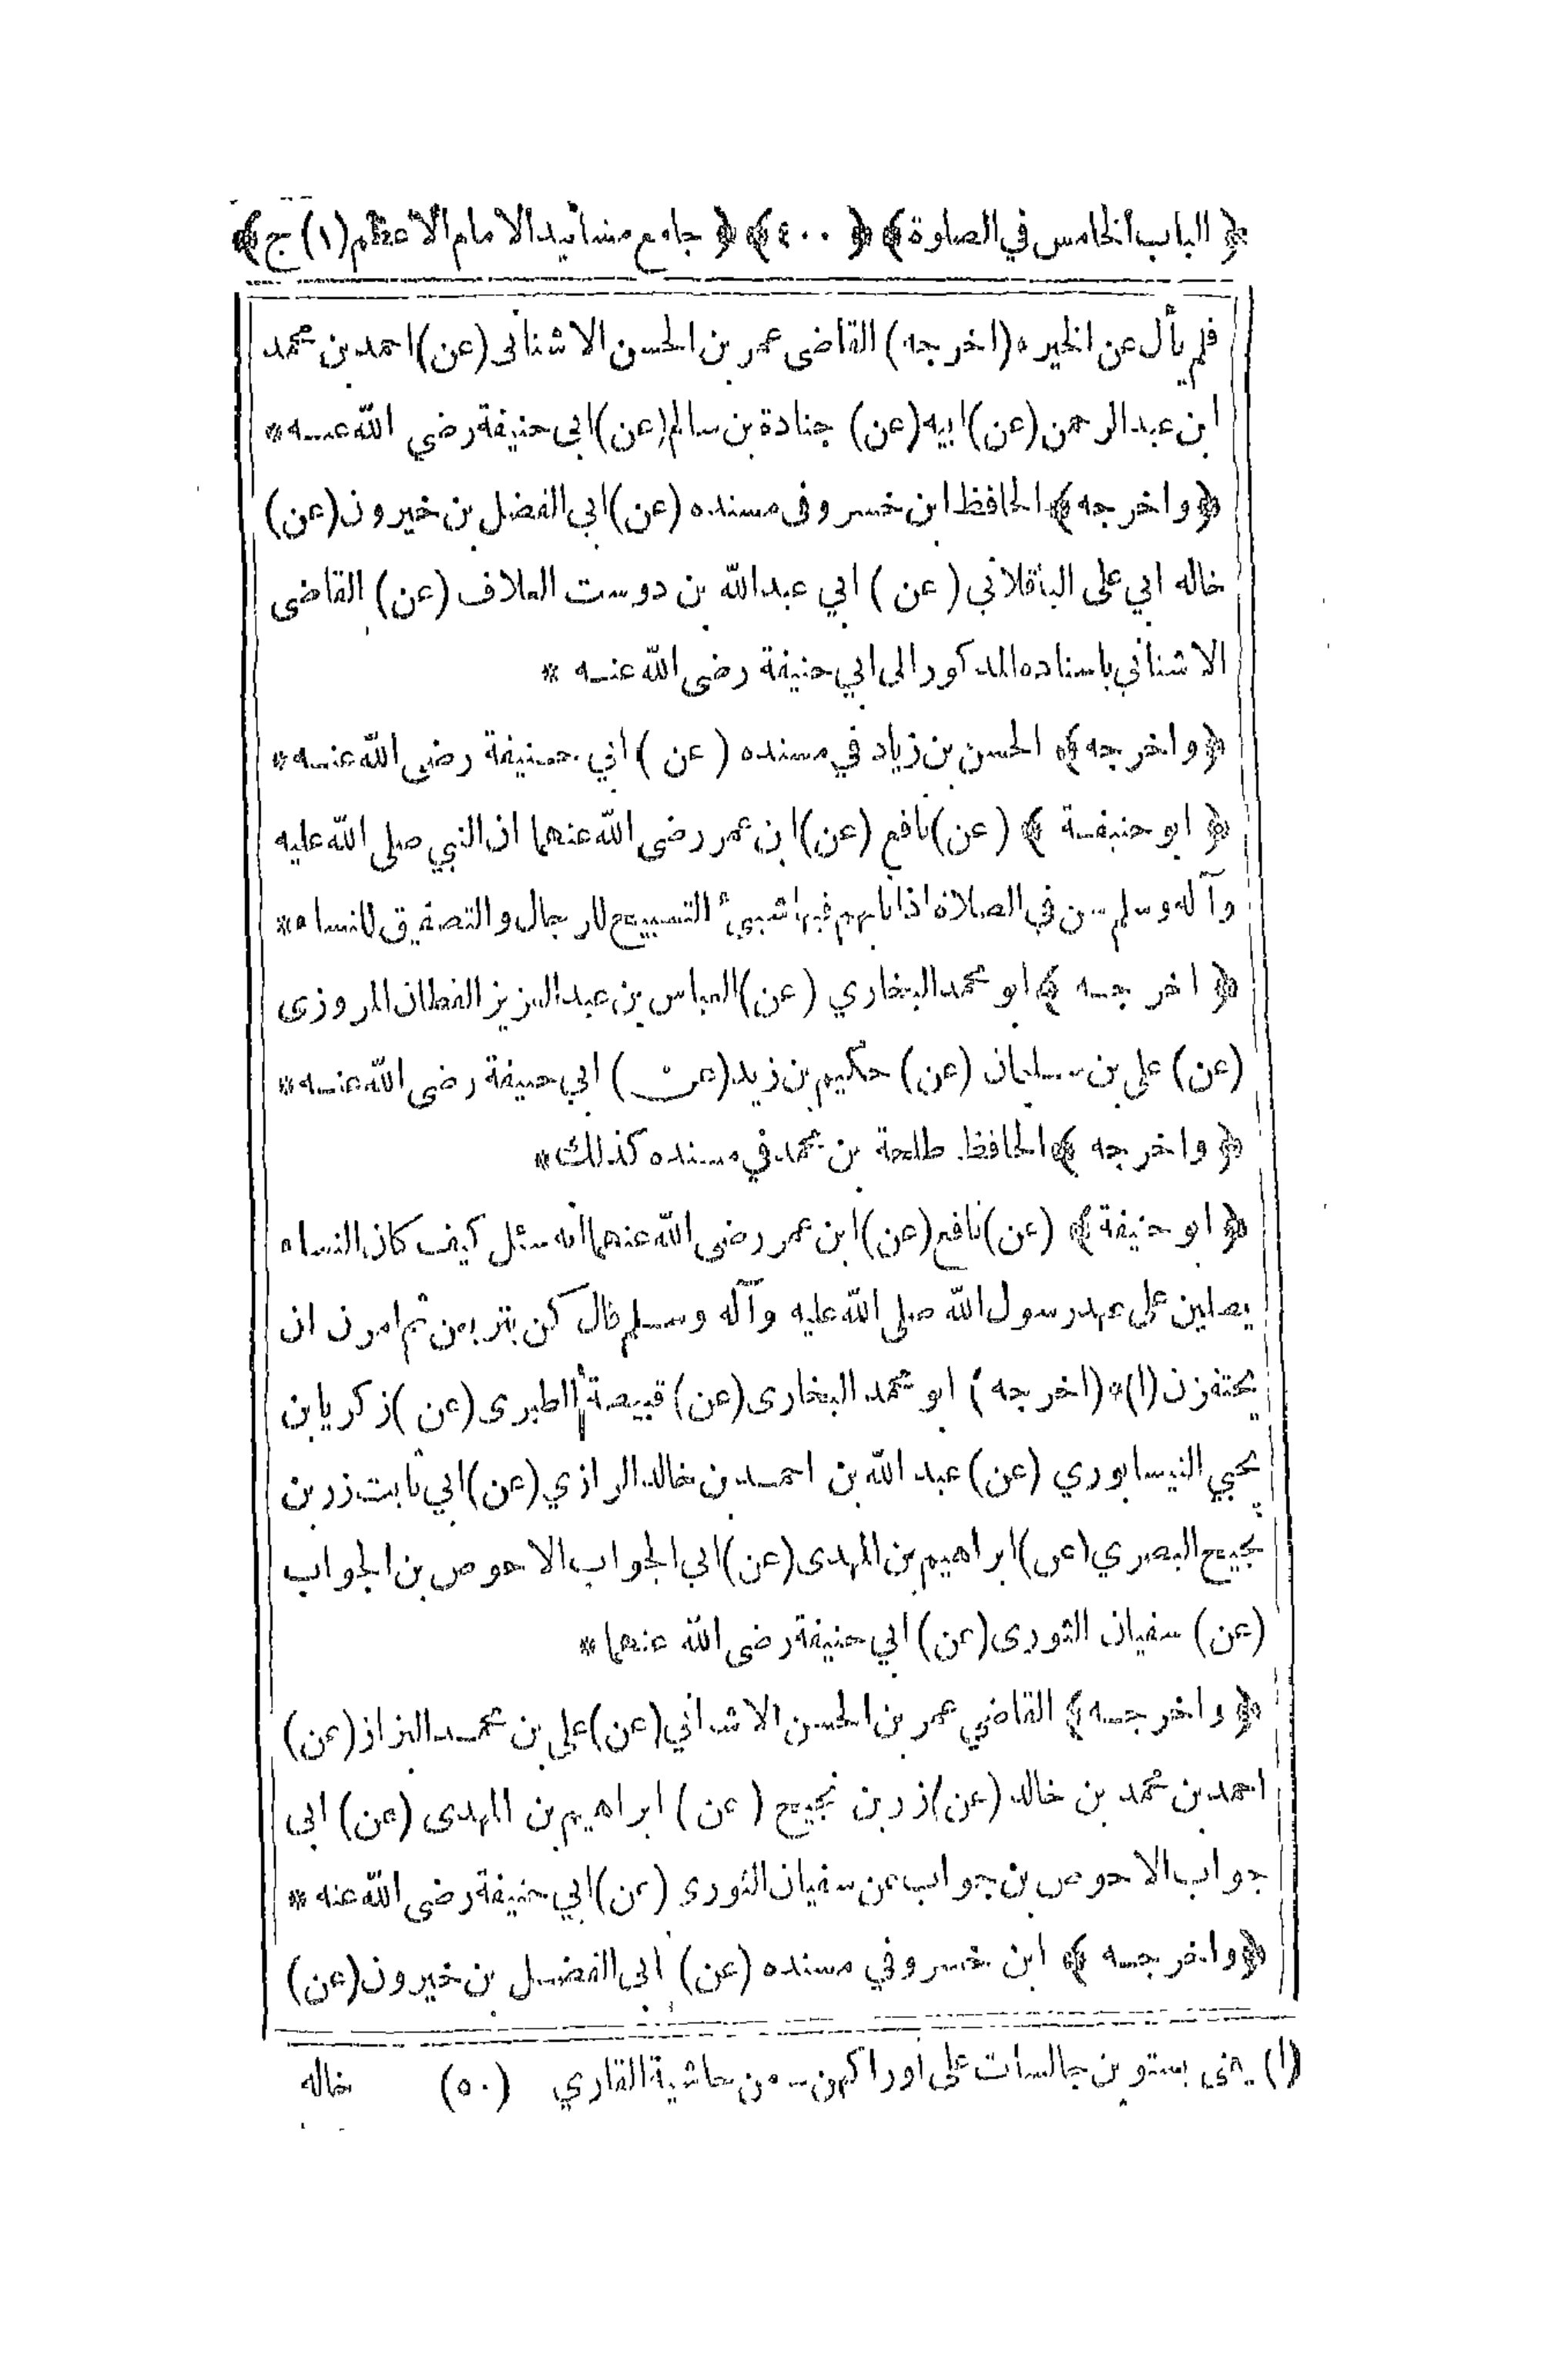 ﴿ الباب الخامس في الصلوة ﴾ ﴿ ٤٠٠ ﴾ ﴿ جامع مسانيد الامام الاعظم (١) ج ﴾
فلم يأل عن الخير * (اخرجه) القاضى عمر بن الحسن الاشنانى (عن) احمد بن محمد
ابن عبد الرحمن (عن) ابيه (عن) جنادة بن سالم (عن) ابى حنيفة رضي الله عنه *
﴿ واخرجه ﴾ الحافظ ابن خسرو فى مسنده (عن) ابي الفضل بن خيرون (عن)
خاله ابي على الباقلاني (عن) ابي عبد الله بن دوست العلاف (عن) القاضى
الاشناني باسناده المذكور الى ابي حنيفة رضى الله عنه *
﴿ واخرجه ﴾ الحسن بن زياد في مسنده (عن) ابي حنيفة رضى الله عنه *
﴿ ابو حنيفة ﴾ (عن) نافع (عن) ابن عمر رضى الله عنهما ان النبي صلى الله عليه
وآله وسلم سن في الصلاة اذا نابهم فيها شيئ التسبيح للرجال والتصفيق للنساء *
﴿ اخرجه ﴾ ابو محمد البخاري (عن) العباس بن عبد العزيز القطان المروزى
(عن) على بن سليمان (عن) حكيم بن زيد (عن) ابي حنيفة رضى الله عنه *
﴿ واخرجه ﴾ الحافظ طلحة بن محمد في مسنده كذلك *
﴿ ابو حنيفة ﴾ (عن) نافع (عن) ابن عمر رضى الله عنهما انه سئل كيف كان النساء
يصلين على عهد رسول الله صلى الله عليه وآله وسلم قال كن يتربعن ثم امرن ان
يحتفزن (١) * (اخرجه) ابو محمد البخارى (عن) قبيصة الطبرى (عن) زكريا بن
يحيي النيسابوري (عن) عبد الله بن احمد بن خالد الرازي (عن) ابي ثابت زر بن
نجيح البصري (عن) ابراهيم بن المهدى (عن) ابي الجواب الاحوص بن الجواب
(عن) سفيان الثورى (عن) ابي حنيفة رضى الله عنهما *
﴿ واخرجه ﴾ القاضي عمر بن الحسن الاشناني (عن) على بن محمد البزاز (عن)
احمد بن محمد بن خالد (عن) زر بن نجيح (عن) ابراهيم بن المهدى (عن) ابى
جواب الاحوص بن جواب عن سفيان الثورى (عن) ابي حنيفة رضى الله عنه *
﴿ واخرجه ﴾ ابن خسرو في مسنده (عن) ابى الفضل بن خيرون (عن)
(١) يعنى يستوين جالسات على اوراكهن - من حاشية القاري (٥٠) خاله